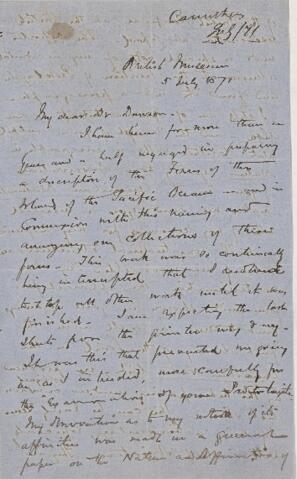 Carruthers
July 1871
British Museum
5 July 1871
My dear Dr Dawson
I have been for more than a
year and a half engaged in preparing
a description of the Ferns of the
Islands of the Pacific Ocean and in
connexion with this naming and
arranging our collections of these
ferns. This work was so continually
being interrupted that I resolved
to stop all other work until it was
finished. I am expecting the last
sheets from the printer
It was this that prevented my going
as I intended, more carefully into
the examination of your Prototaxites
My as to my of its
affinities was made in a
paper on the Nature and of